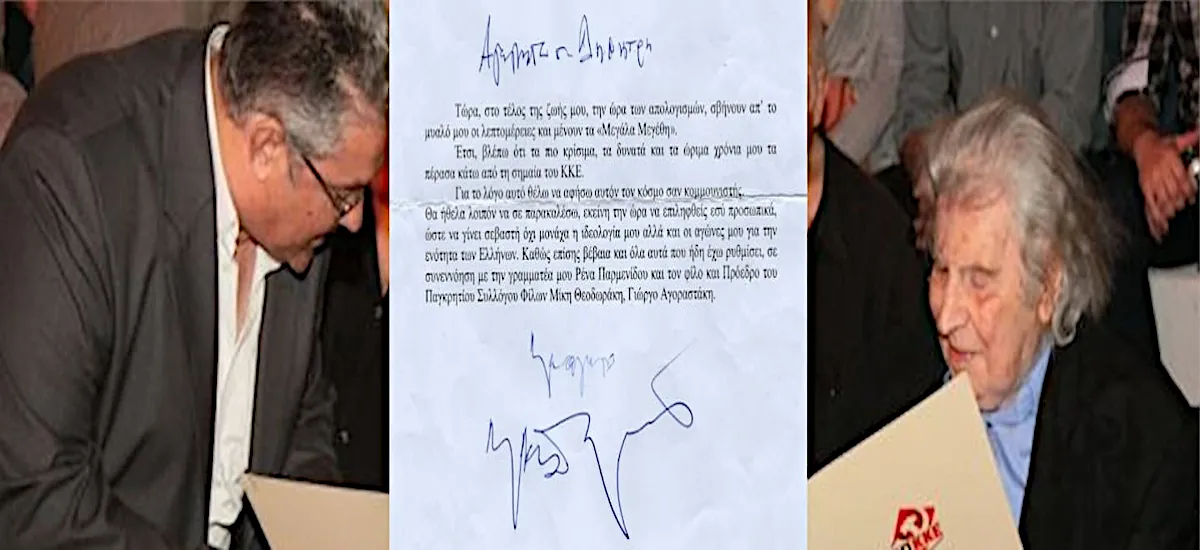 Αγαπητέ Δημήτρη
Τώρα, στο τέλος της ζωής μου, την ώρα των απολογισμών, σβήνουν απ’ το
μυαλό μου οι λεπτομέρειες και μένουν τα «Μεγάλα Μεγέθη».
Έτσι, βλέπω ότι τα πιο κρίσιμα, τα δυνατά και τα ώριμα χρόνια μου τα
πέρασα κάτω από τη σημαία του ΚΚΕ.
Για το λόγο αυτό θέλω να αφήσω αυτόν τον κόσμο σαν κομμουνιστής.
Θα ήθελα λοιπόν να σε παρακαλέσω, εκείνη την ώρα να επιληφθείς εσύ προσωπικά,
ώστε να γίνει σεβαστή όχι μονάχα η ιδεολογία μου αλλά και οι αγώνες μου για την
ενότητα των Ελλήνων. Καθώς επίσης βέβαια και όλα αυτά που ήδη έχω ρυθμίσει, σε
συνεννόηση με την γραμματέα μου Ρένα Παρμενίδου και τον φίλο και Πρόεδρο του
Παγκρητίου Συλλόγου Φίλων Μίκη Θεοδωράκη, Γιώργο Αγοραστάκη.
ΚΚΕ